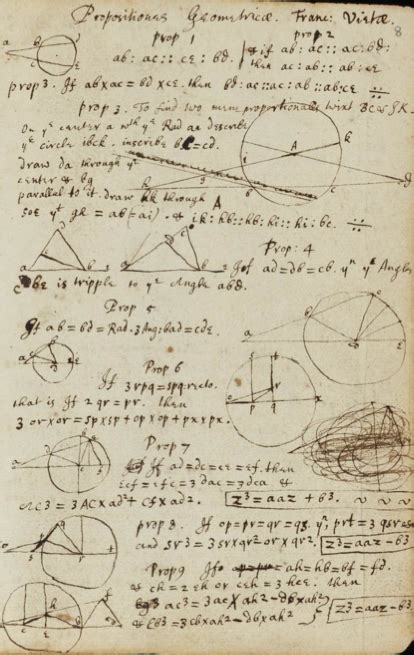 Propositiones Geometricæ. Franc: Vietæ. 8
prop 1
ab: ac:: ce: bd.
prop 2
& if ab: ac:: ac: bd:
then ac: ab:: ab: ce
prop 3. If ab x ac = bd x ce. then bd: ac:: ac: ab:: ab: ce ÷
prop 3. To find two meane proportionalls twixt BC & gk.
On ye center a with ye Rad an describe
ye circle ibck. inscribe bc = cd.
draw da through ye
center & bg
parallal to it. draw hk through A
soe yt gh = ab = ai) & ik: hb:: hb: hi:: hi: bc. ÷
Prop: 4
If ad = db = cb. yn ye Angle
cbe is tripple to ye Angle abd.
Prop 5
If ab = bd = Rad. 3 Ang: bad = cde.
Prop 6
If 3 rpq = spq: recto.
that is If 2 qr = pr. then
3 or x or = sp x sp + op x op + px x px.
Prop 7
If ad = dc = ce = ef. then
ecf = efc = 3 dac = 3 dca &
ac3 = 3 AC x ad2 + cf x ad2. z3 = aaz + b3.
prop 8. If op = pr = qr = qs. yn prt = 3 qsr
and sr3 = 3 sr x qr2 - or x qr2. z3 = aaz - b3
Prop 9 If ah = hb = bf = fd.
& ch = 2 eh or ceh = 3 hce. then
ac3 = 3 ac x ah2 - db x ah2
& cb3 = 3 cb x ah2 - db x ah2 z3 = aaz - b3